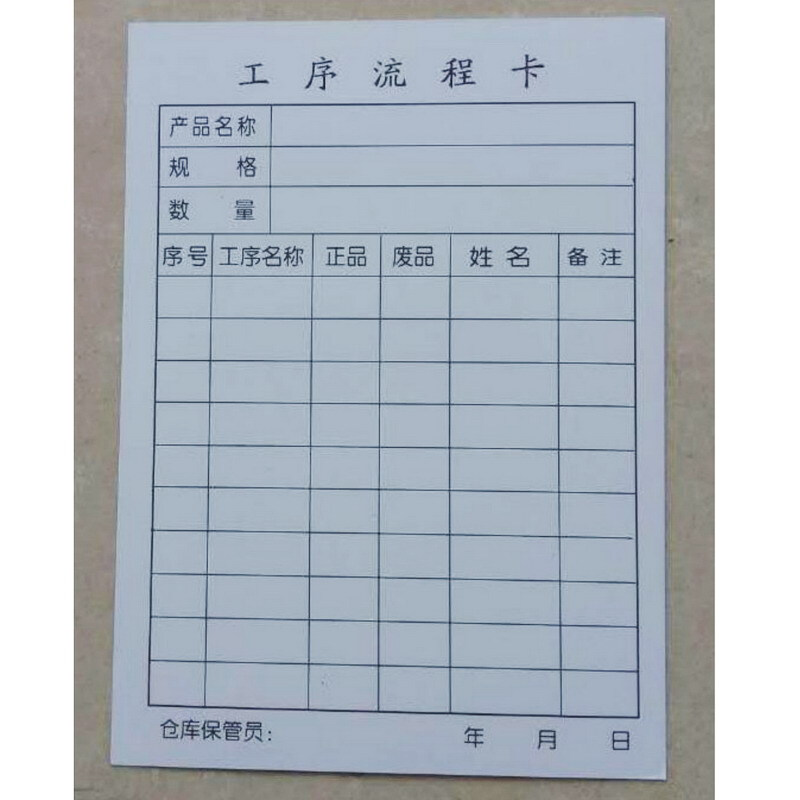 工序流程卡
产品名称
规 格
数 量
序号 工序名称 正品 废品 姓名 备注
仓库保管员： 年 月 日